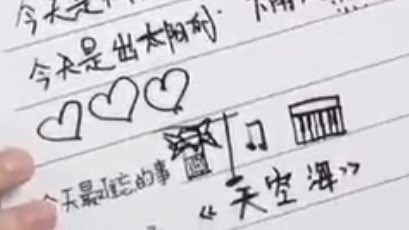 今天是
今天是出太阳的
天最难忘的事
《天空海》